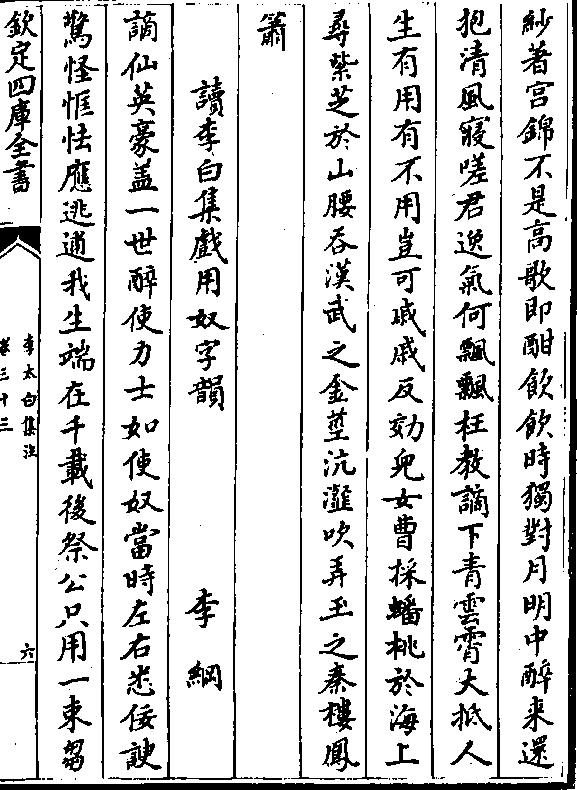 紗著宫錦不是高歌即酣飲飲時獨對月明中醉来還
抱清風寢嗟君逸氣何飄飄枉教謫下青雲霄大抵人
生有用有不用豈可戚戚反効兒女曹採蟠桃於海上
尋紫芝於山腰吞漢武之金莖沆瀣吹弄玉之秦樓鳳
簫
讀李白集戲用奴字韻
李綱
謫仙英豪盖一世醉使力士如使奴當時左右悉佞諛
驚怪恇怯應逃逋我生端在千載後祭公只用一束芻
欽定四庫全書
李太白集注
卷三十三
六